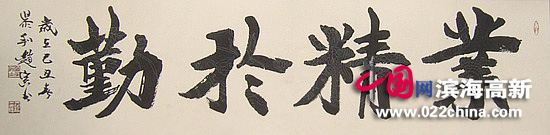 業精於勤
歲在己丑春
中国网 滨海高新
www.022china.com